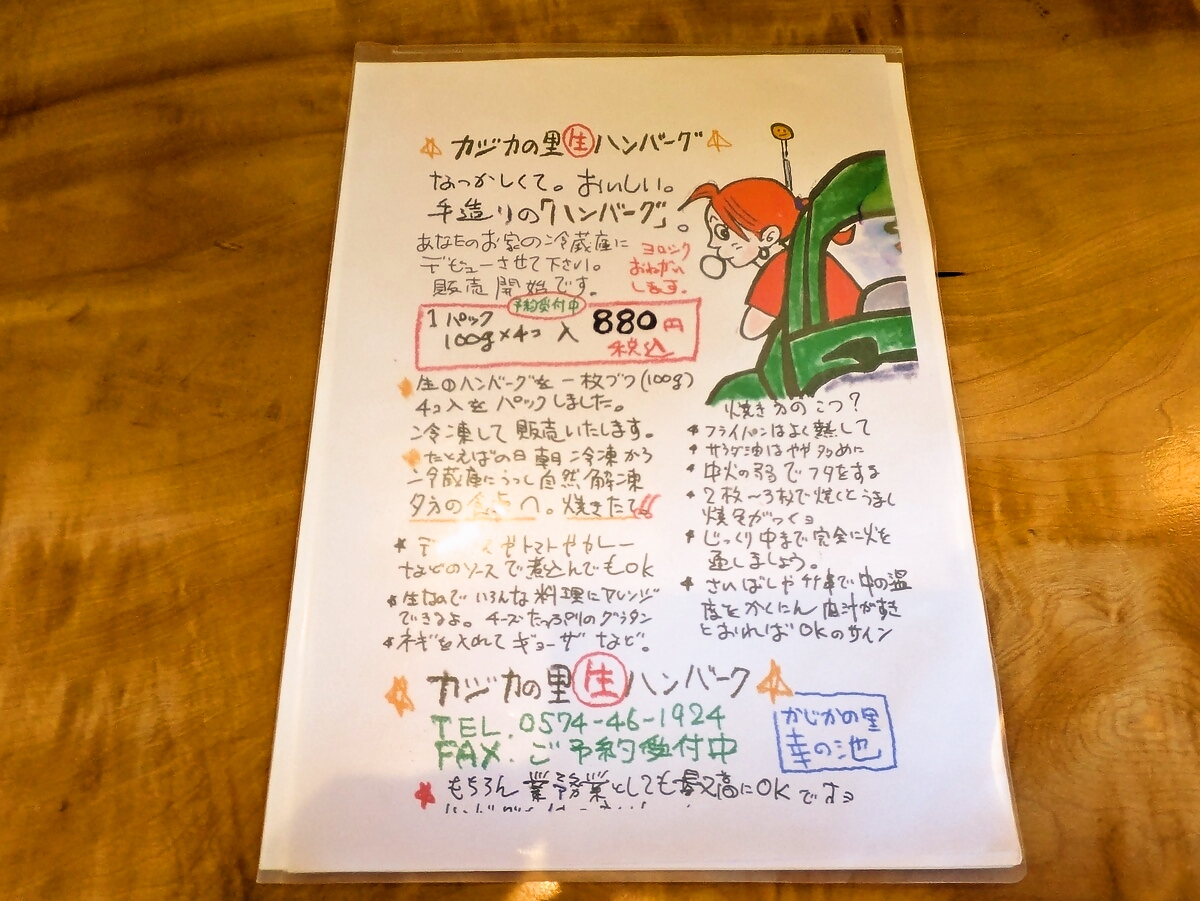 カジカの里生ハンバーグ
なつかしくて。おいしい。
手造りの「ハンバーグ」。
あなたのお家の冷蔵庫に
デビューさせて下さい。
販売開始です。
ヨロシク
おねがい
します。
予約受付中
1パック
100g×4コ入 880円
税込
生のハンバーグを一枚づつ(100g)
4コ入をパックしました。
冷凍して販売いたします。
たとえばの日朝冷凍から
冷蔵庫にうつし自然解凍
夕方の食卓へ。焼きたて!!
やトマトやカレー
などのソースで煮込んでもOK
生なのでいろんな料理にアレンジ
できるよ。チーズたっぷりのグラタン
ネギを入れてギョーザなど。
焼き方のこつ?
フライパンはよく熱して
サラダ油はやや多めに
中火の弱でフタをする
2枚〜3枚で焼くとうまし
焼色がつくヨ
じっくり中まで完全に火を
通しましょう。
さいばしや竹串で中の温
度をかくにん肉汁がすき
とおればOKのサイン
カジカの里生ハンバーク
TEL.0574-46-1924
FAX.ご予約受付中
かじかの里
幸の池
もちろん業務業としても最高にOKですヨ